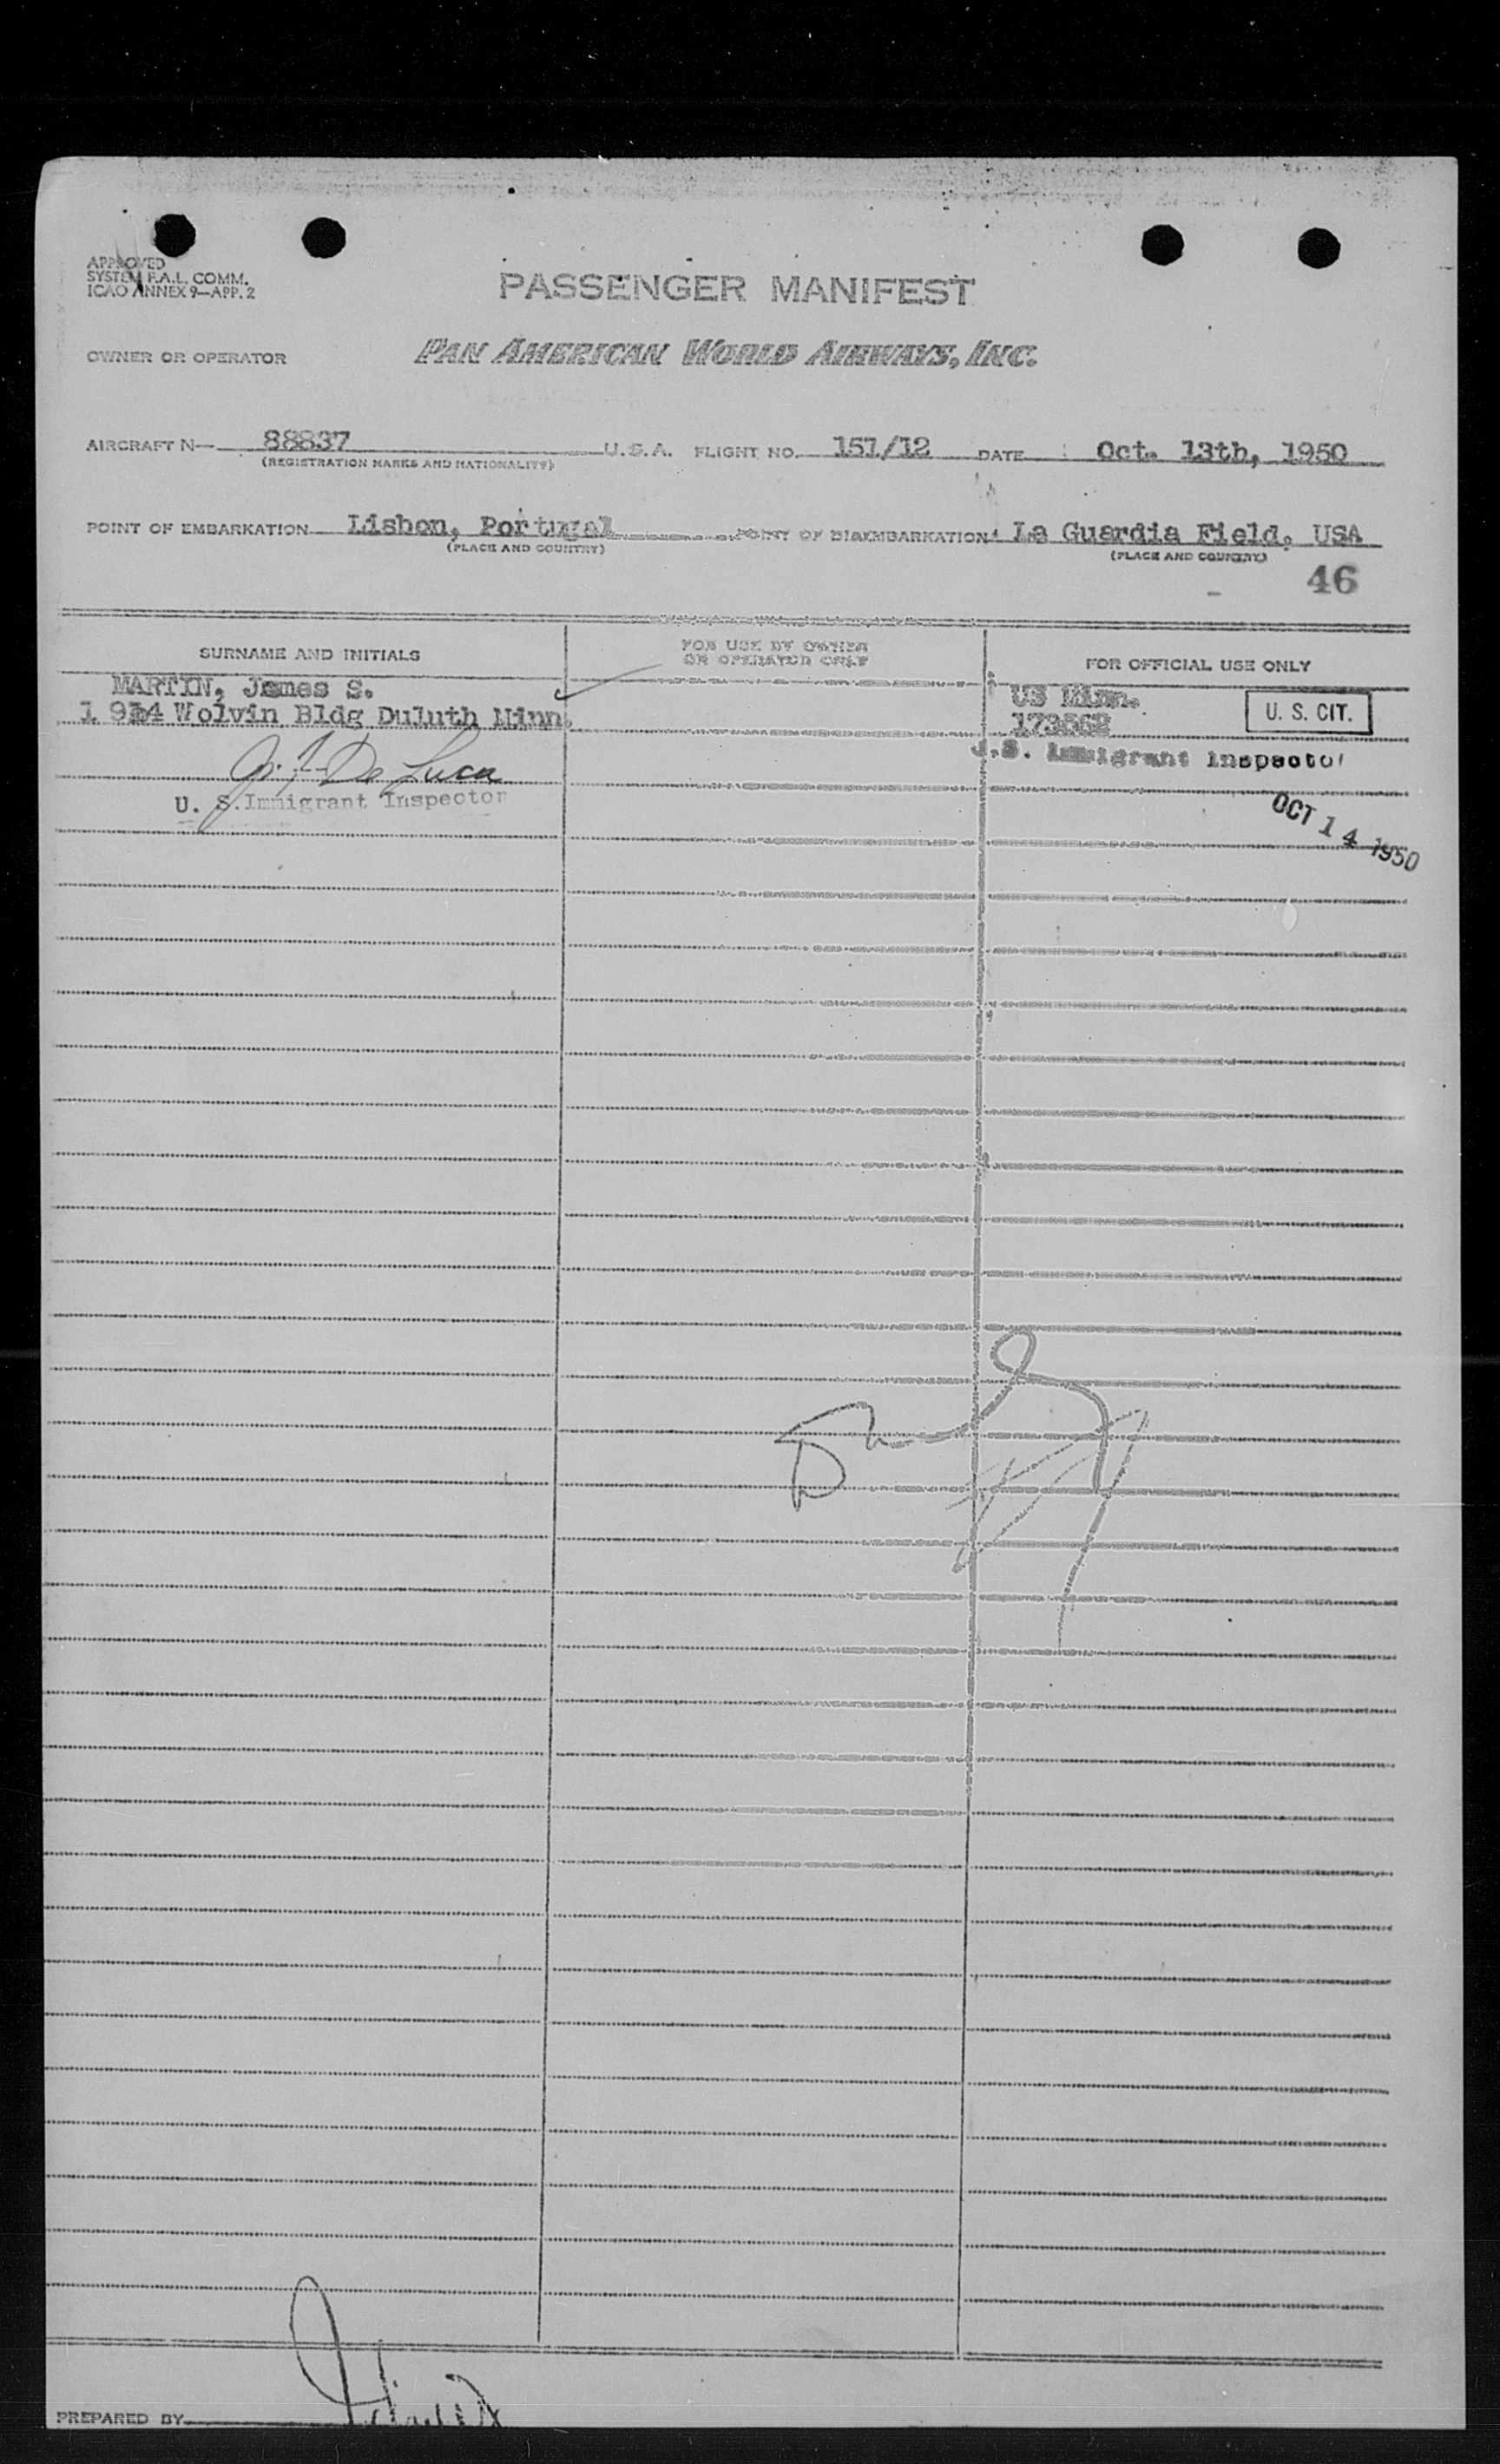 APPROVED
SYSTEM F.A.L. COMM.
ICAO ANNEX 9—APP. 2
PASSENGER MANIFEST
OWNER OR OPERATOR PAN AMERICAN WORLD AIRWAYS, INC.
AIRCRAFT N— 88837 U.S.A. FLIGHT NO. 151/12 DATE Oct. 13th, 1950
(REGISTRATION MARKS AND NATIONALITY)
POINT OF EMBARKATION Lisbon, Portugal POINT OF DISEMBARKATION La Guardia Field, USA
(PLACE AND COUNTRY) (PLACE AND COUNTRY)
46
SURNAME AND INITIALS FOR USE BY OWNER OR OPERATOR ONLY FOR OFFICIAL USE ONLY
MARTIN, James S. US Minn.
1 Wolvin Bldg Duluth Minn. 173562 U. S. CIT.
U.S. Immigrant Inspector
De Luca
U. S. Immigrant Inspector
OCT 14 1950
PREPARED BY